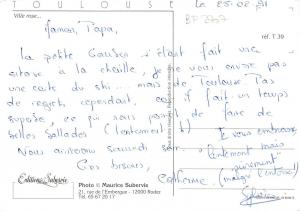 TOULOUSE
Ville rose...
Le 25.02.91
réf. T 39
Maman, Papa,
la petite Gauser s'étant fait une
entorse à la cheville, je ne vous envoie pas
une carte du ski... mais de Toulouse. Pas
de regrets cependant, car il fait un temps
superbe, ce qui sera parfait de faire de
belles ballades (lentement !)
Nous arriverons samedi soir
Gros bisous,
Catherine.
Je vous embrasse
lentement mais
purement
(malgré l'entorse)
Editions Subervie
Photo © Maurice Subervie
21, rue de l'Embergue - 12000 Rodez
Tél. 65 67 20 17